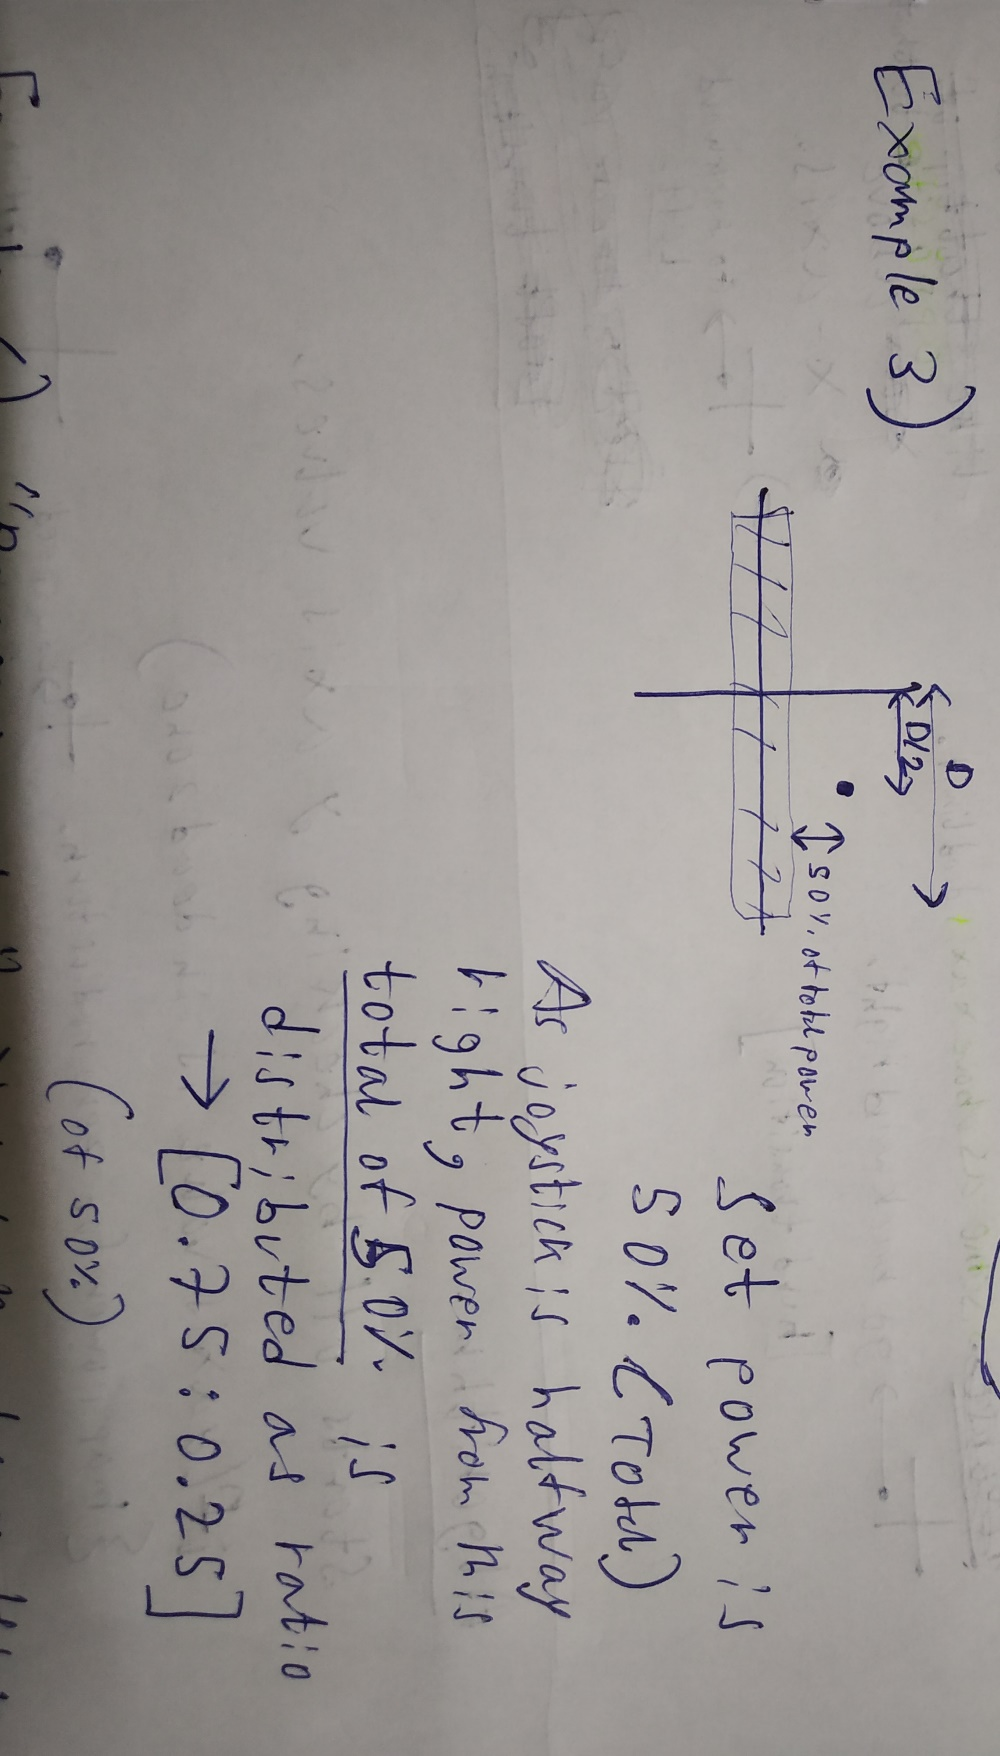 Example 3)
D
D/2
50% of total power
Set power is
50% (Total)
As joystick is halfway
right, power from this
total of 50% is
distributed as ratio
→ [0.75:0.25]
(of 50%)